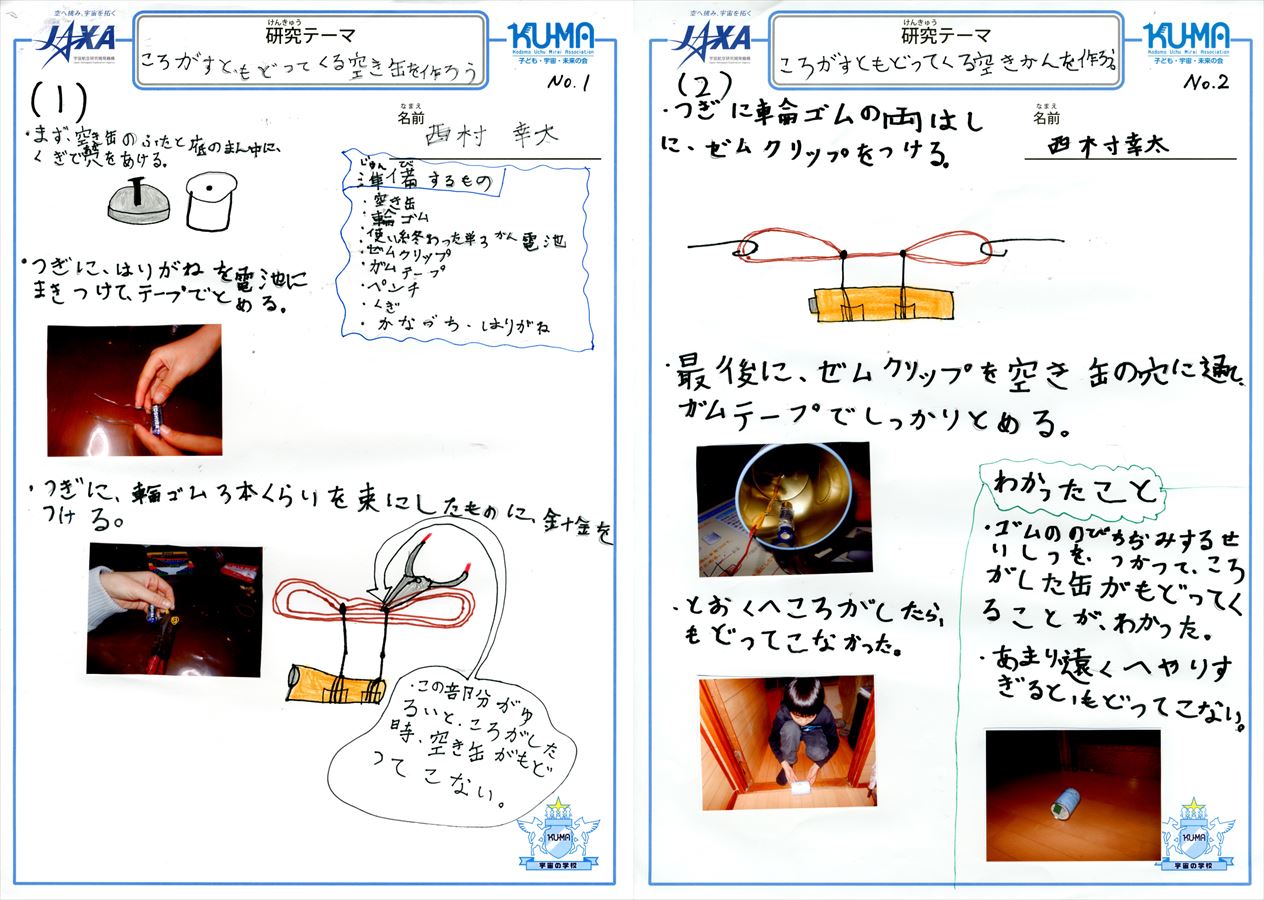 空へ挑み、宇宙を拓く
JAXA
宇宙航空研究開発機構
Japan Aerospace Exploration Agency
けんきゅう
研究テーマ
ころがすと、もどってくる空き缶を作ろう
KU-MA
Kodomo Uchu Mirai Association
子ども・宇宙・未来の会
No.1
(1)
なまえ
名前
西村 幸太
・まず、空き缶のふたと底のまん中に、
くぎで穴をあける。
じゅんび
準備するもの
・空き缶
・輪ゴム
・使い終わった単3かん電池
・ゼムクリップ
・ガムテープ
・ペンチ
・くぎ
・かなづち・はりがね
・つぎに、はりがねを電池に
まきつけて、テープでとめる。
・つぎに、輪ゴム3本くらいを束にしたものに、針金を
つける。
・この部分がゆ
るいと、ころがした
時、空き缶がもど
ってこない。
KU-MA
宇宙の学校
空へ挑み、宇宙を拓く
JAXA
宇宙航空研究開発機構
Japan Aerospace Exploration Agency
けんきゅう
研究テーマ
ころがすともどってくる空きかんを作ろう。
KU-MA
Kodomo Uchu Mirai Association
子ども・宇宙・未来の会
No.2
(2)
なまえ
名前
西村幸太
・つぎに車輪ゴムの両はし
に、ゼムクリップをつける。
・最後に、ゼムクリップを空き缶の穴に通して、
ガムテープでしっかりとめる。
・とおくへころがしたら、
もどってこなかった。
わかったこと
・ゴムののびちぢみするせ
いしつを、つかって、ころ
がした缶がもどってく
ることが、わかった。
・あまり遠くへやりす
ぎると、もどってこない。
KU-MA
宇宙の学校